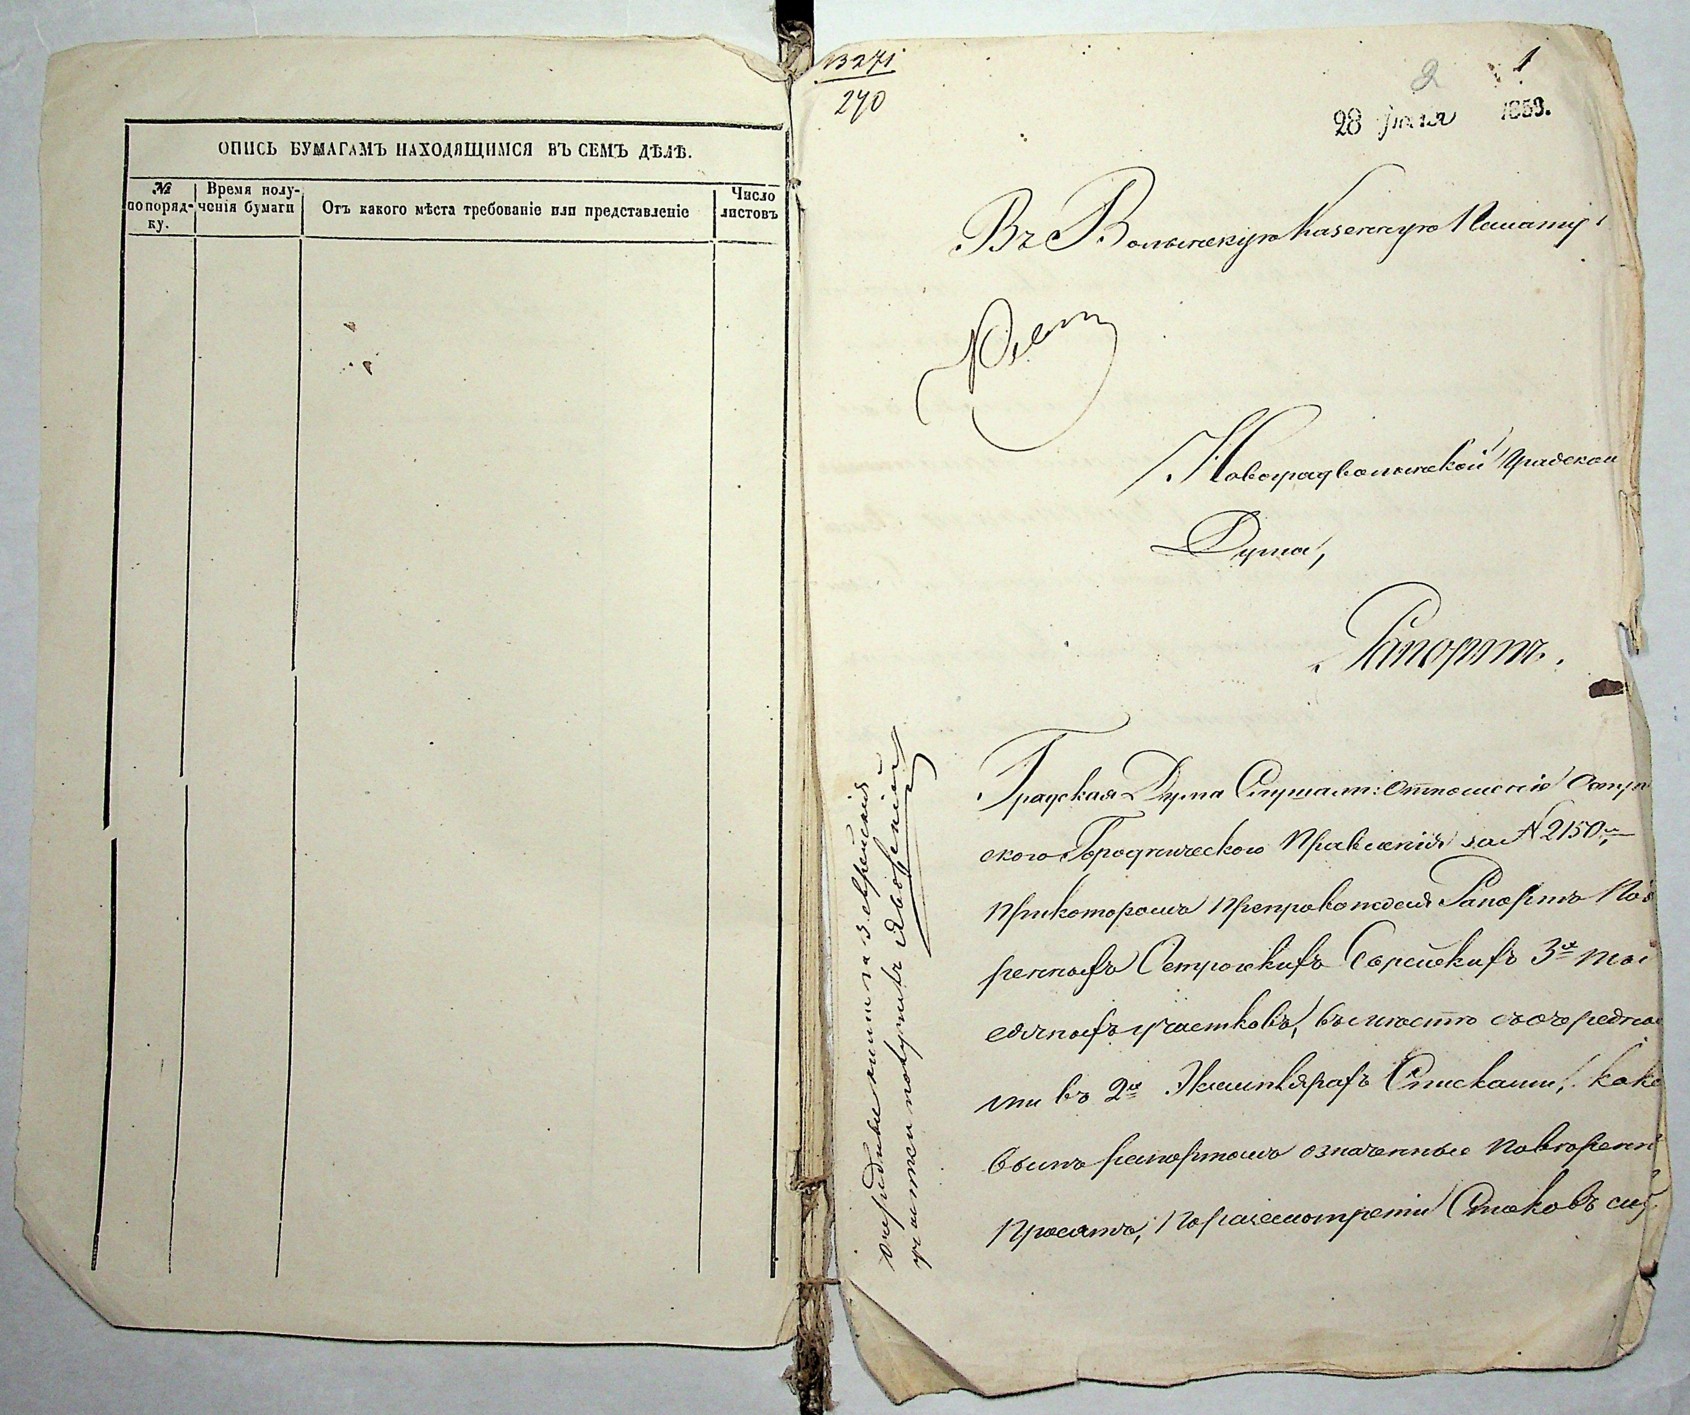 ОПИСЬ БУМАГАМЪ НАХОДЯЩИМСЯ ВЪ СЕМЪ ДѢЛѢ.
№ по поряд-ку.
Время полу-ченія бумаги
Отъ какого мѣста требованіе или представленіе
Число листовъ
13271
270
2
1
28 1853.
Въ Волынскую Казенную Палату
Новоградволынской Градской
Думы,
Рапортъ.
Градская Дума Слушали: отношеніе Остро
ского Городническаго Правленія за № 2150,
при которомъ препровождая Рапортъ Пов
ренныхъ Острожскихъ Еврейскихъ 3х
участковъ, вместо съ очередны
ми въ 2х Экземплярахъ Списками, како
вымъ рапортомъ означенные повѣренн
просятъ, по разсмотреніи
очередные книги за еврейскія
участки получилъ